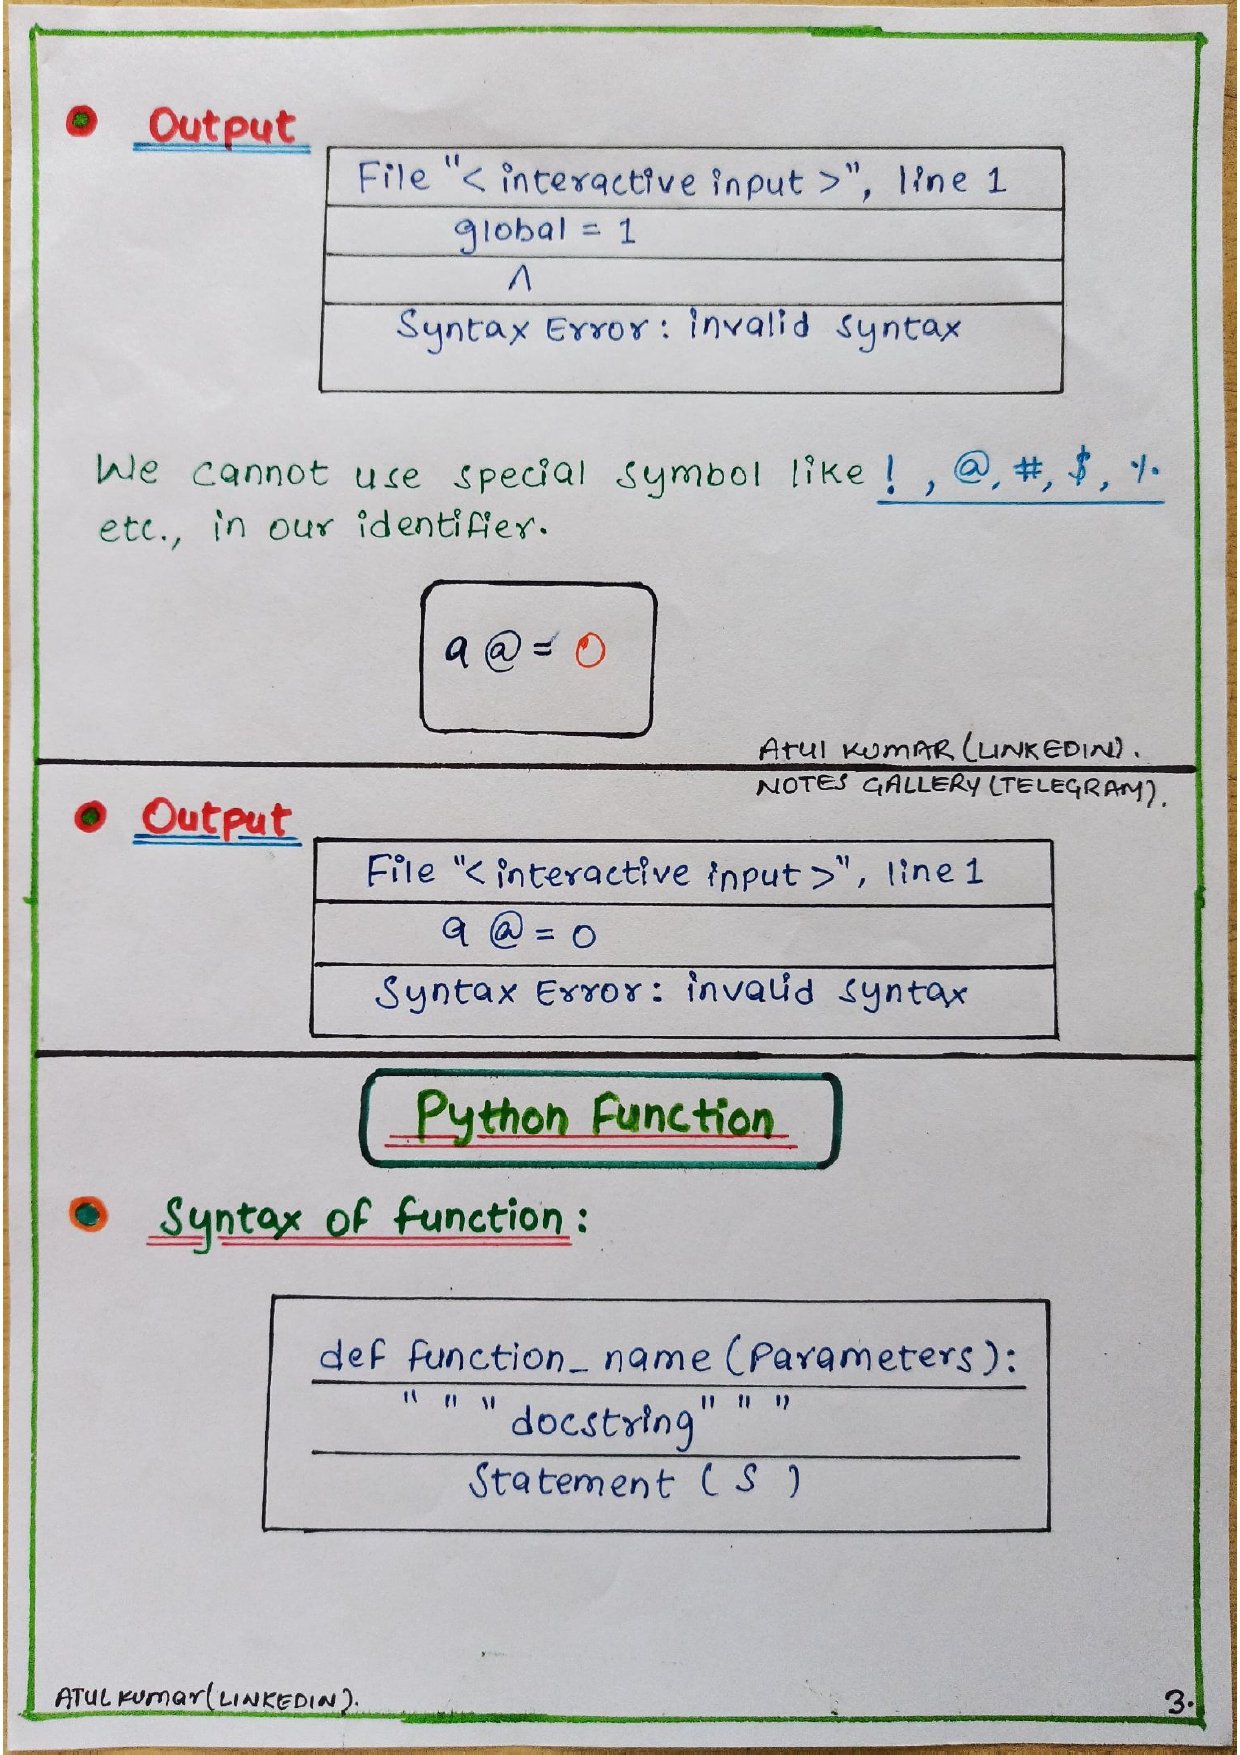 Output
File "< interactive input >", line 1
global = 1
^
Syntax Error : invalid syntax
We cannot use special symbol like ! , @, #, $, %
etc., in our identifier.
a @ = 0
Atul KUMAR (LINKEDIN).
NOTES GALLERY (TELEGRAM).
Output
File "< interactive input >", line 1
a @ = 0
Syntax Error : invalid syntax
Python Function
Syntax of function :
def function_name (Parameters) :
" " " docstring " " "
Statement ( S )
ATUL KUMAR (LINKEDIN).
3.